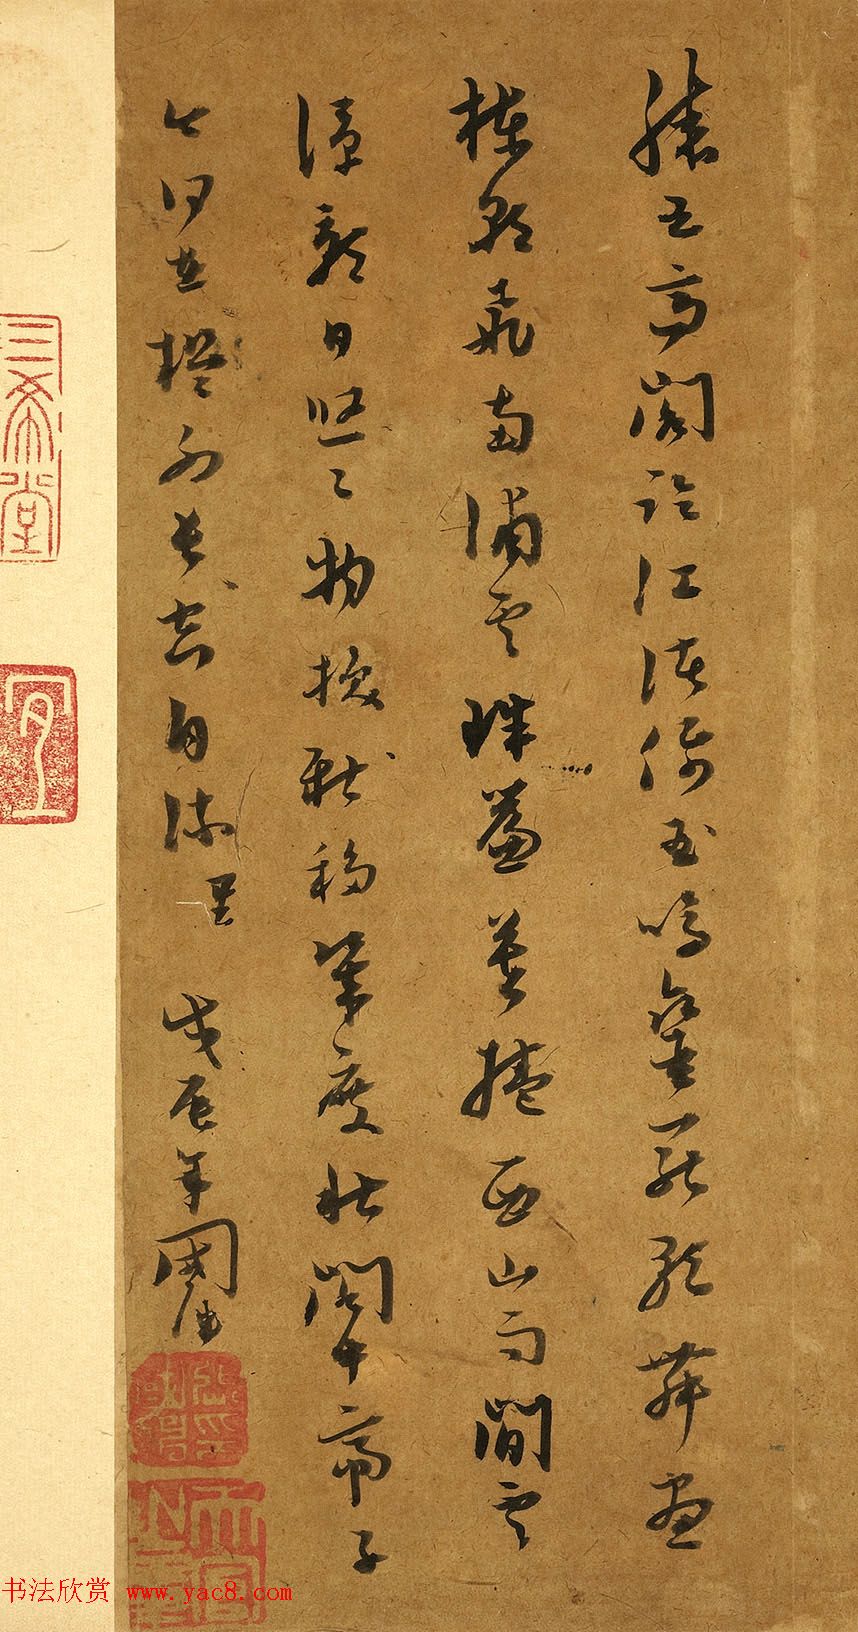 滕王高閣臨江渚佩玉鳴鑾罷歌舞畫
棟朝飛南浦雲珠簾暮捲西山雨閒雲
潭影日悠〻物換移幾度秋閣中帝子
今何在檻外長空自流
戊辰年
三希堂
宜
书法欣赏 www.yac8.com